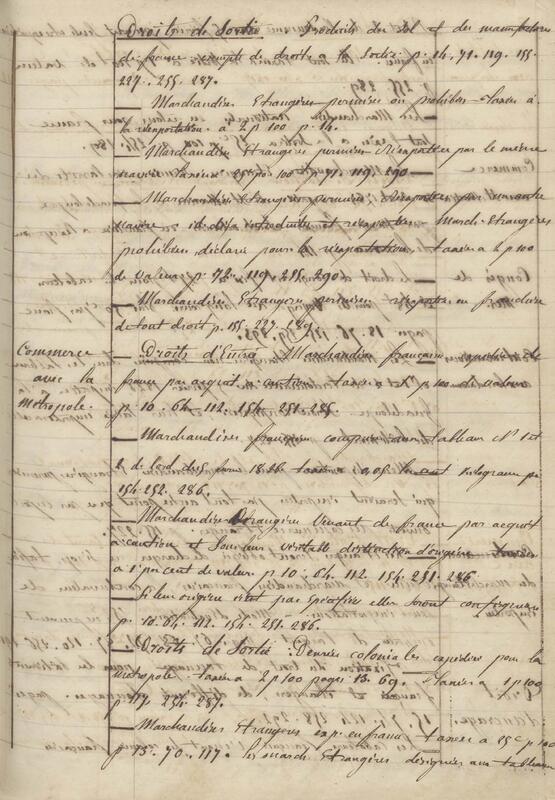 Droits de Sortie Produits du sol et des manufactures
de france exempts de droits a la Sortie p. 14. 71. 119. 155.
227. 255. 287.
— Marchandises Etrangères permises ou prohibées taxées à
la réexportation à 2 p 100 p. 14.
— Marchandises Etrangères permises Réexportées par le même
navire taxées p 100 p. 71. 119. 290
— Marchandises Etrangères permises Réexportées par un autre
navire introduites et réexportées — March. Etrangères
prohibées, déclarées pour la réexportation, taxées a 2 p 100
de valeur p. 72. 119. 255. 290
— Marchandises Etrangères permises réexportées en franchise
de tout droit p. 155. 227. 289
Commerce
avec la
Métropole.
— Droits d'Entrée. Marchandises françaises expédiées de
france par acquit a caution taxées a p 100 de valeur
p. 10. 64. 112. 154. 251. 285.
— Marchandises françaises comprises aux tableaux N° 1 et
2 de l'ord. du 1826 taxées a 0,05 le kilogram p.
154. 252. 286.
— Marchandises Etrangères Venant de france par acquit
a caution et sous leur véritable d'origine taxées
a 1 pr cent de valeur p. 10. 64. 112. 154. 251. 286.
— Si leur origine n'est pas spécifiée elles seront
p. 10. 64. 112. 154. 251. 286.
— Droits de Sortie : Denrées coloniales expédiées pour la
métropole taxées a 2 p 100 pages 13. 69. — taxées 1 p 100
p. 117. 254. 287.
— Marchandises Etrangères exp. en france taxées a 15c p 100
p. 13. 70. 117. les march. Etrangères désignées aux tableaux